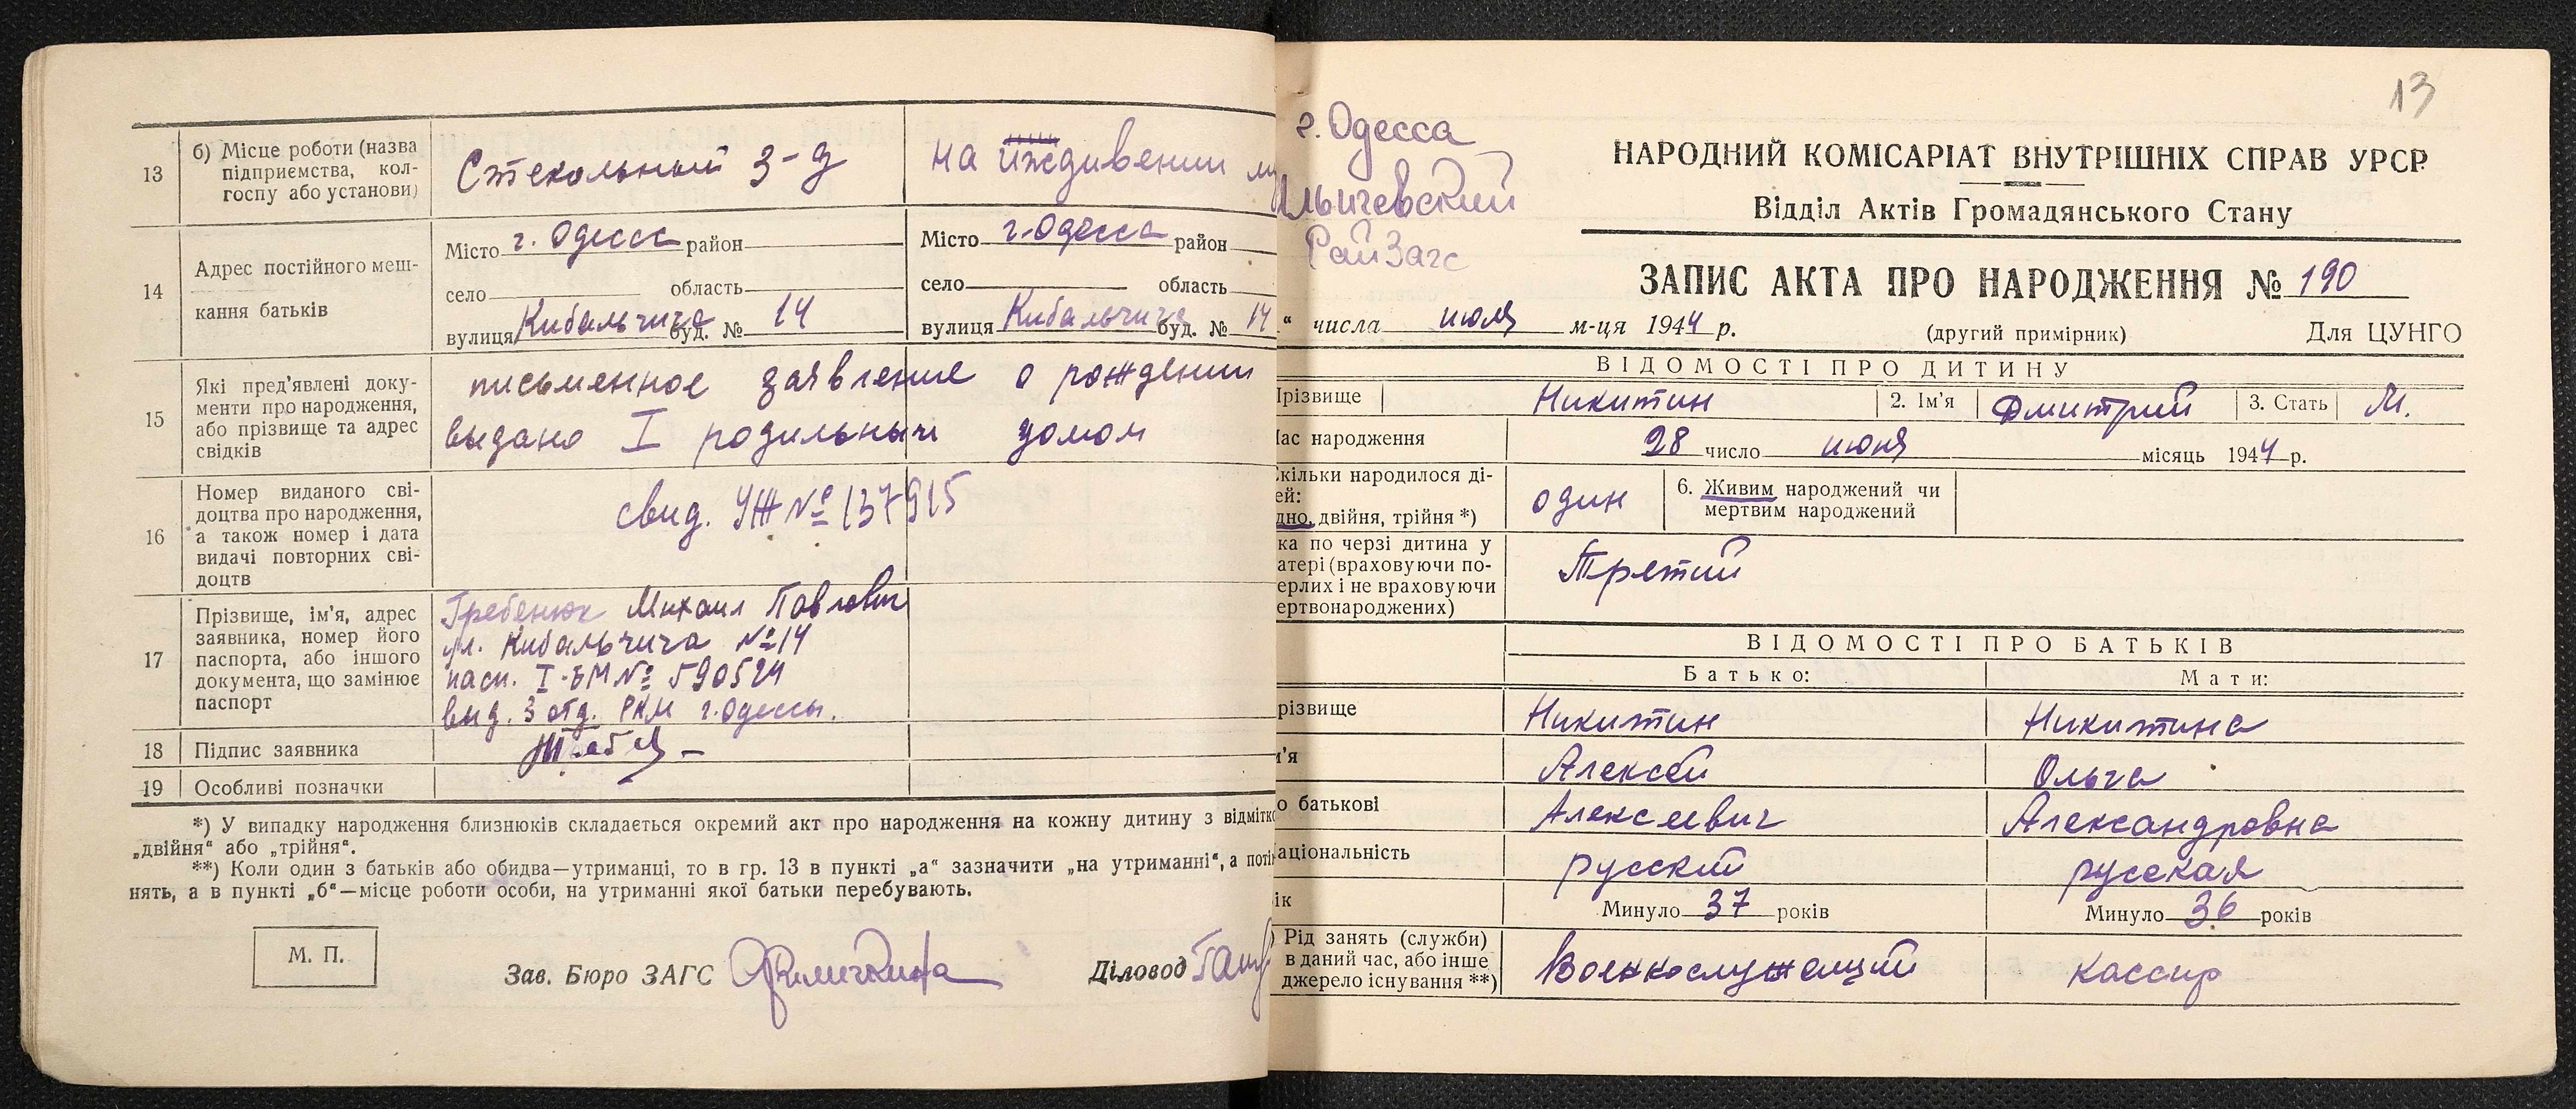 13
б) Місце роботи (назва
підприємства, кол-
госпу або установи)
Стекольный з-д
на иждивении
14
Адрес постійного меш-
кання батьків
Місто г. Одесса район
село область
вулиця Кибальчича буд. № 14
Місто г. Одесса район
село область
вулиця Кибальчича буд. № 14
15
Які пред'явлені доку-
менти про народження,
або прізвище та адрес
свідків
письменное заявление о рождении
выдано I родильным домом
16
Номер виданого сві-
доцтва про народження,
а також номер і дата
видачі повторних сві-
доцтв
свид. УЖ № 137915
17
Прізвище, ім'я, адрес
заявника, номер його
паспорта, або іншого
документа, що замінює
паспорт
Гребенюк Михаил Павлович
ул. Кибальчича № 14
пасп. I-БМ № 590524
выд. 3 отд. РКМ г. Одессы.
18 Підпис заявника
19 Особливі позначки
*) У випадку народження близнюків складається окремий акт про народження на кожну дитину з відмітко
„двійня“ або „трійня“.
**) Коли один з батьків або обидва—утриманці, то в гр. 13 в пункті „а“ зазначити „на утриманні“, а поті
нять, а в пункті „б“—місце роботи особи, на утриманні якої батьки перебувають.
М. П.
Зав. Бюро ЗАГС
Діловод
13
г. Одесса
Ильичевский
РайЗагс
НАРОДНИЙ КОМІСАРІАТ ВНУТРІШНІХ СПРАВ УРСР
Відділ Актів Громадянського Стану
ЗАПИС АКТА ПРО НАРОДЖЕННЯ № 190
“ числа июля м-ця 1944 р. (другий примірник) Для ЦУНГО
ВІДОМОСТІ ПРО ДИТИНУ
різвище Никитин 2. Ім'я Дмитрий 3. Стать М.
ас народження 28 число июня місяць 1944 р.
кільки народилося ді-
ей:
дно, двійня, трійня *)
один
6. Живим народжений чи
мертвим народжений
ка по черзі дитина у
атері (враховуючи по-
ерлих і не враховуючи
ертвонароджених)
Третий
ВІДОМОСТІ ПРО БАТЬКІВ
Батько: Мати:
різвище Никитин Никитина
м'я Алексей Ольга
о батькові Алексеевич Александровна
аціональність русский русская
ік Минуло 37 років Минуло 36 років
) Рід занять (служби)
в даний час, або інше
джерело існування **)
Военнослужащий
кассир